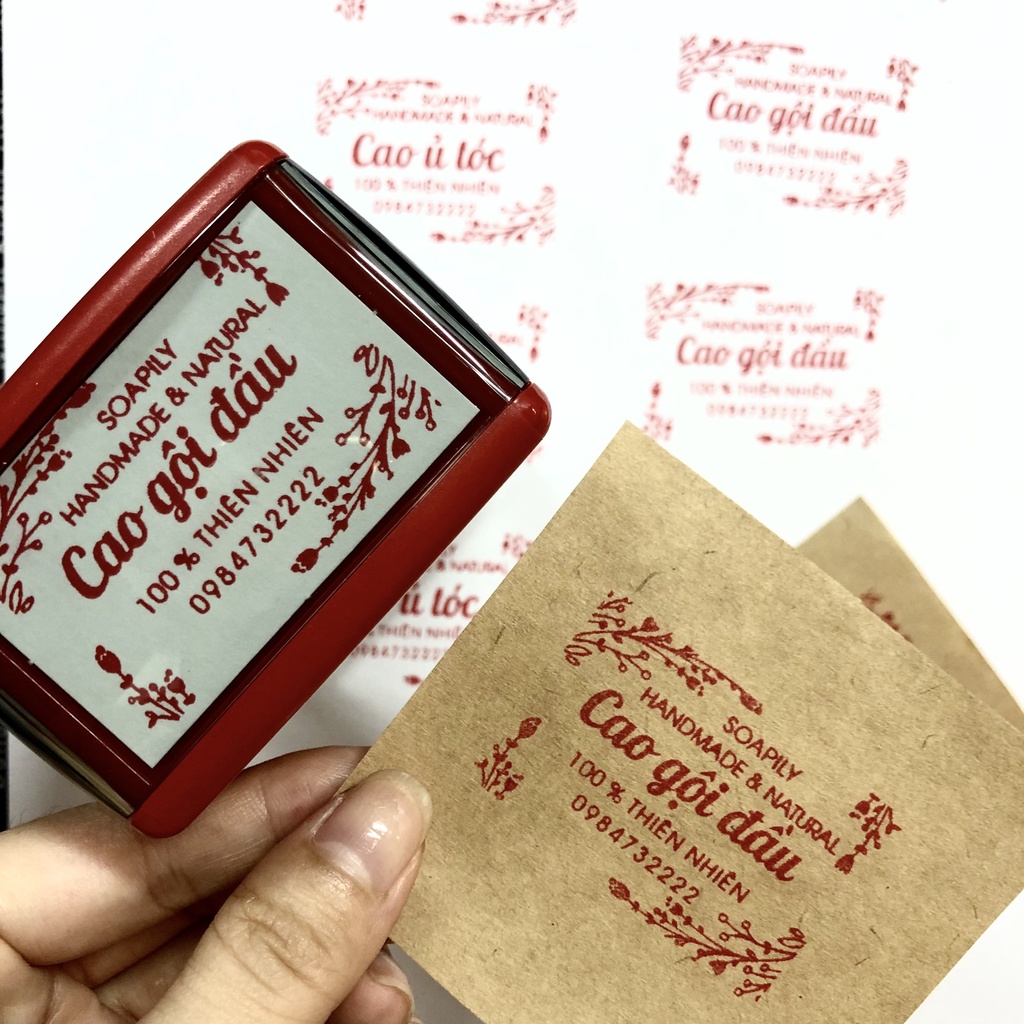 SOAPILY
HANDMADE & NATURAL
Cao ủ tóc
100 % THIÊN NHIÊN
0984732222
SOAPILY
HANDMADE & NATURAL
Cao gội đầu
100 % THIÊN NHIÊN
0984732222
SOAPILY
HANDMADE & NATURAL
Cao gội đầu
100 % THIÊN NHIÊN
0984732222
SOAPILY
HANDMADE & NATURAL
Cao gội đầu
100 % THIÊN NHIÊN
0984732222
ủ tóc
THIÊN NHIÊN
0984732222
SOAPILY
HANDMADE & NATURAL
Cao gội đầu
100 % THIÊN NHIÊN
0984732222